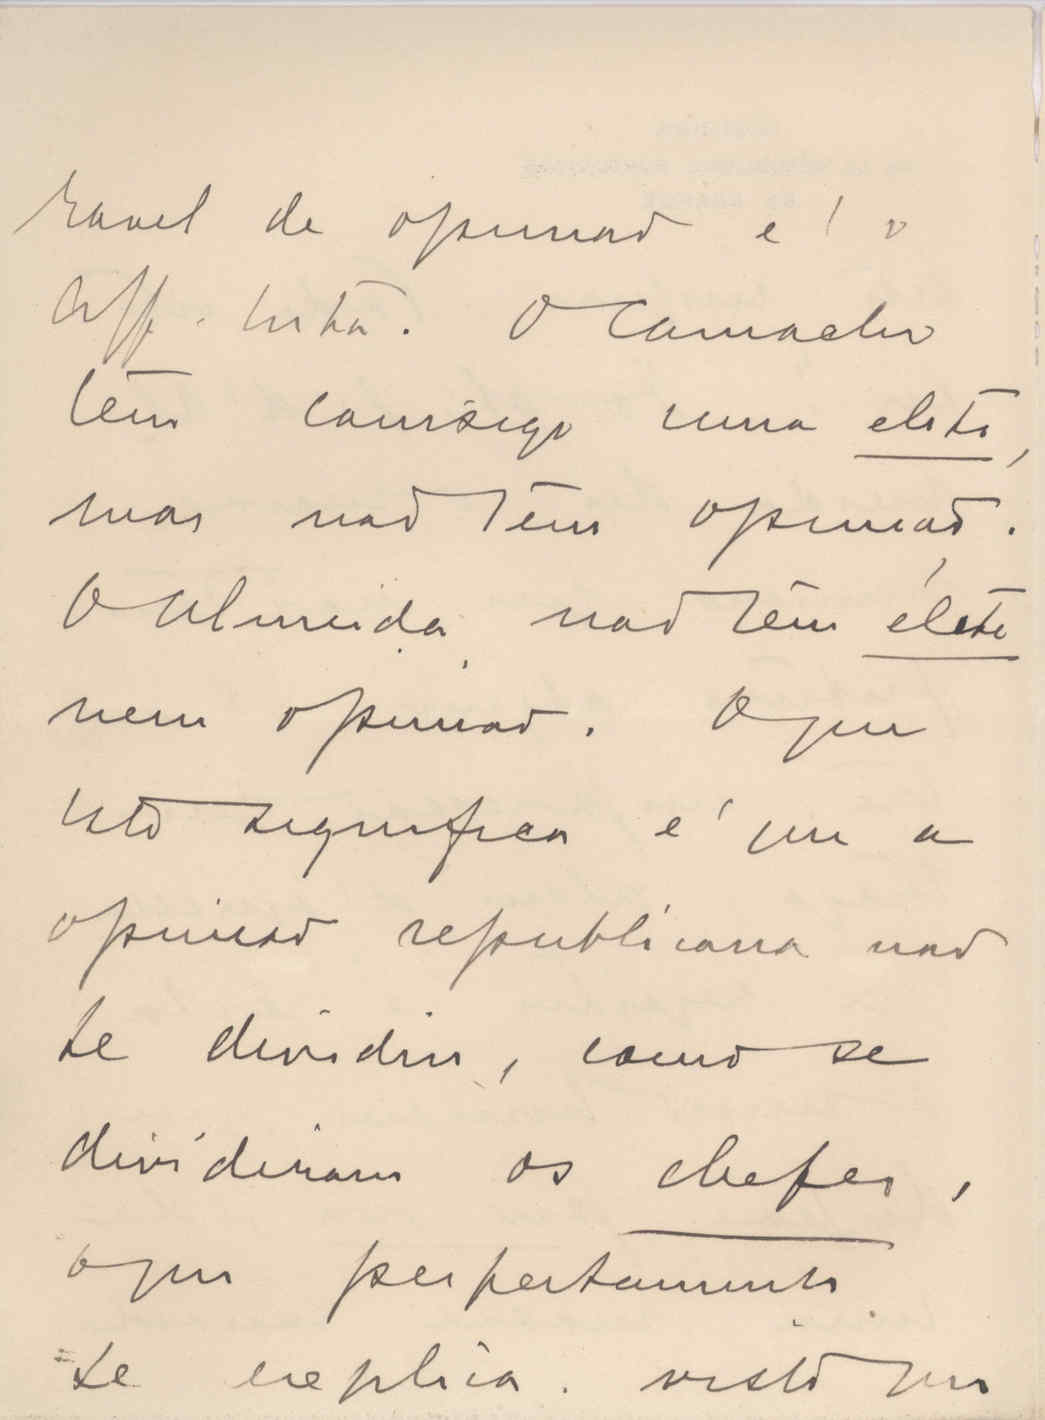 ravel de opinião é o
Aff. Costa. O Camacho
têm comsigo uma elite,
mas não têm opinião.
O Almeida não têm élite
nem opinião. O que
isto significa é que a
opinião republicana não
se dividiu, como se
dividiram os chefes,
o que perfeitamente
se explica. visto que